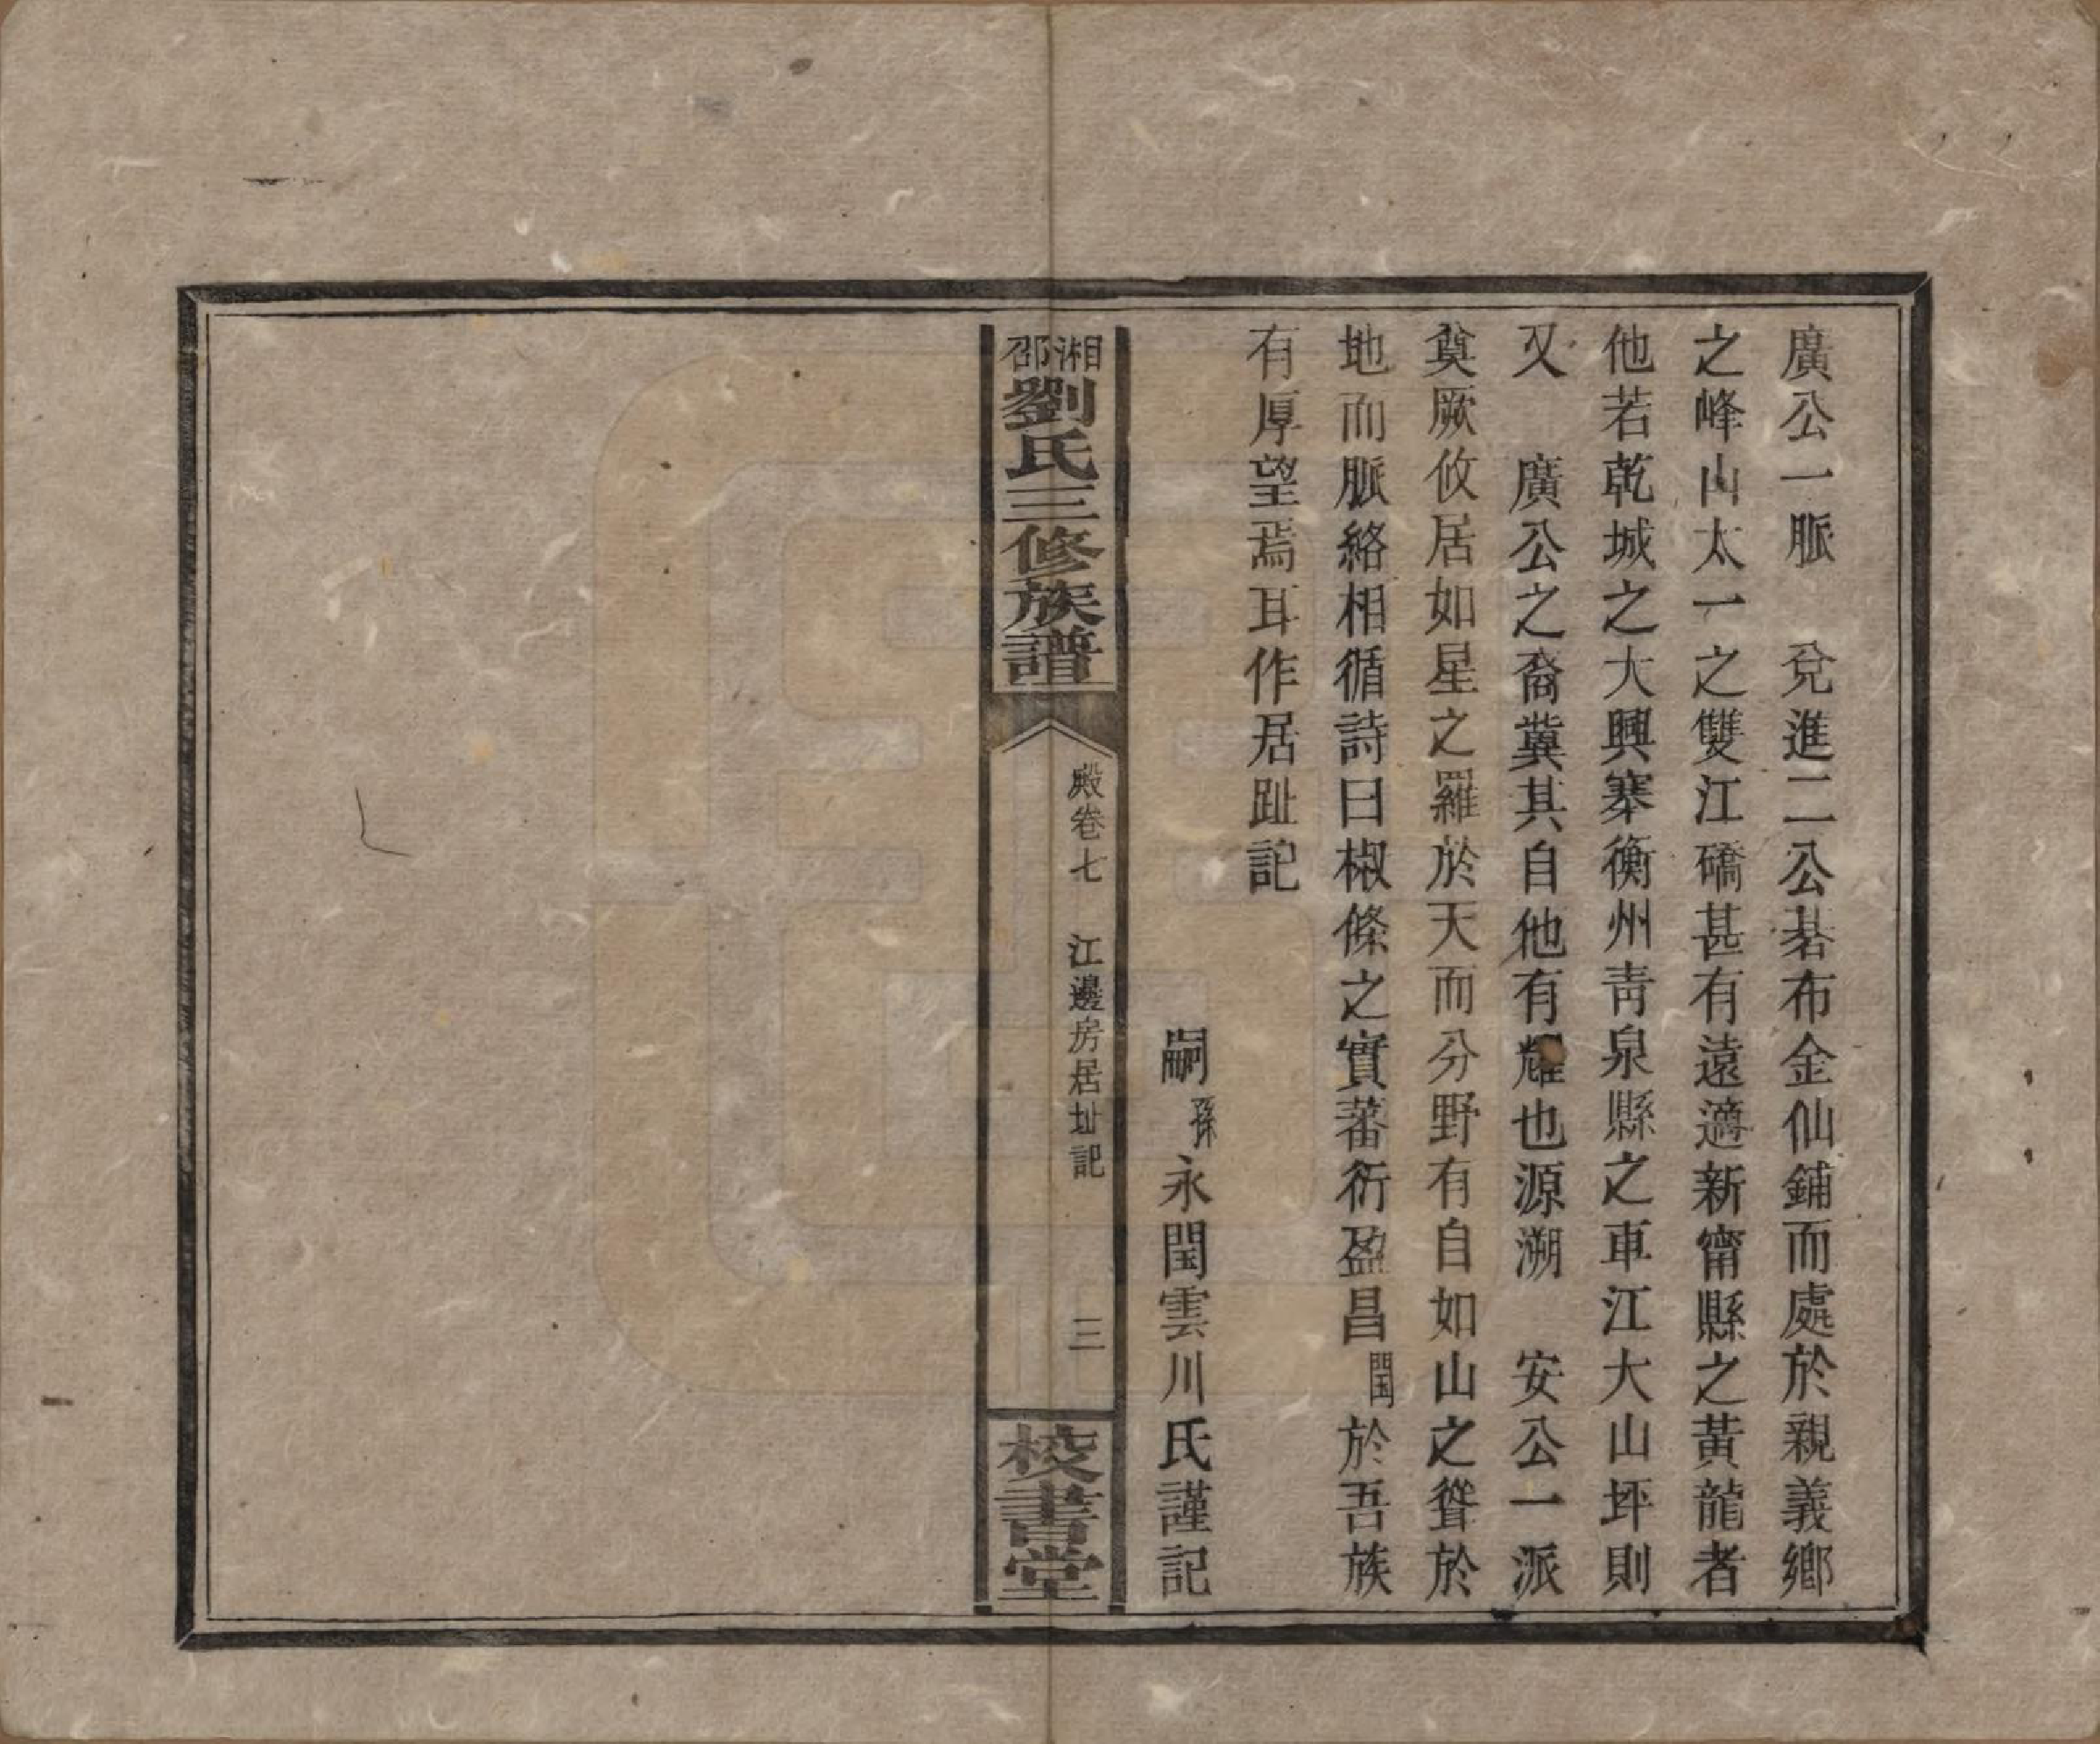 廣公一脈　兌進二公碁布金仙鋪而處於親義鄉
之峰山太一之雙江礄甚有遠適新甯縣之黃龍者
他若乾城之大興寨衡州青泉縣之車江大山坪則
又　廣公之裔冀其自他有耀也源溯　安公一派
奠厥攸居如星之羅於天而分野有自如山之聳於
地而脈絡相循詩曰椒條之實蕃衍盈昌閏於吾族
有厚望焉耳作居趾記
嗣孫永閏雲川氏謹記
湘邵劉氏三修族譜
殿卷七　江邊房居址記　三
校書堂